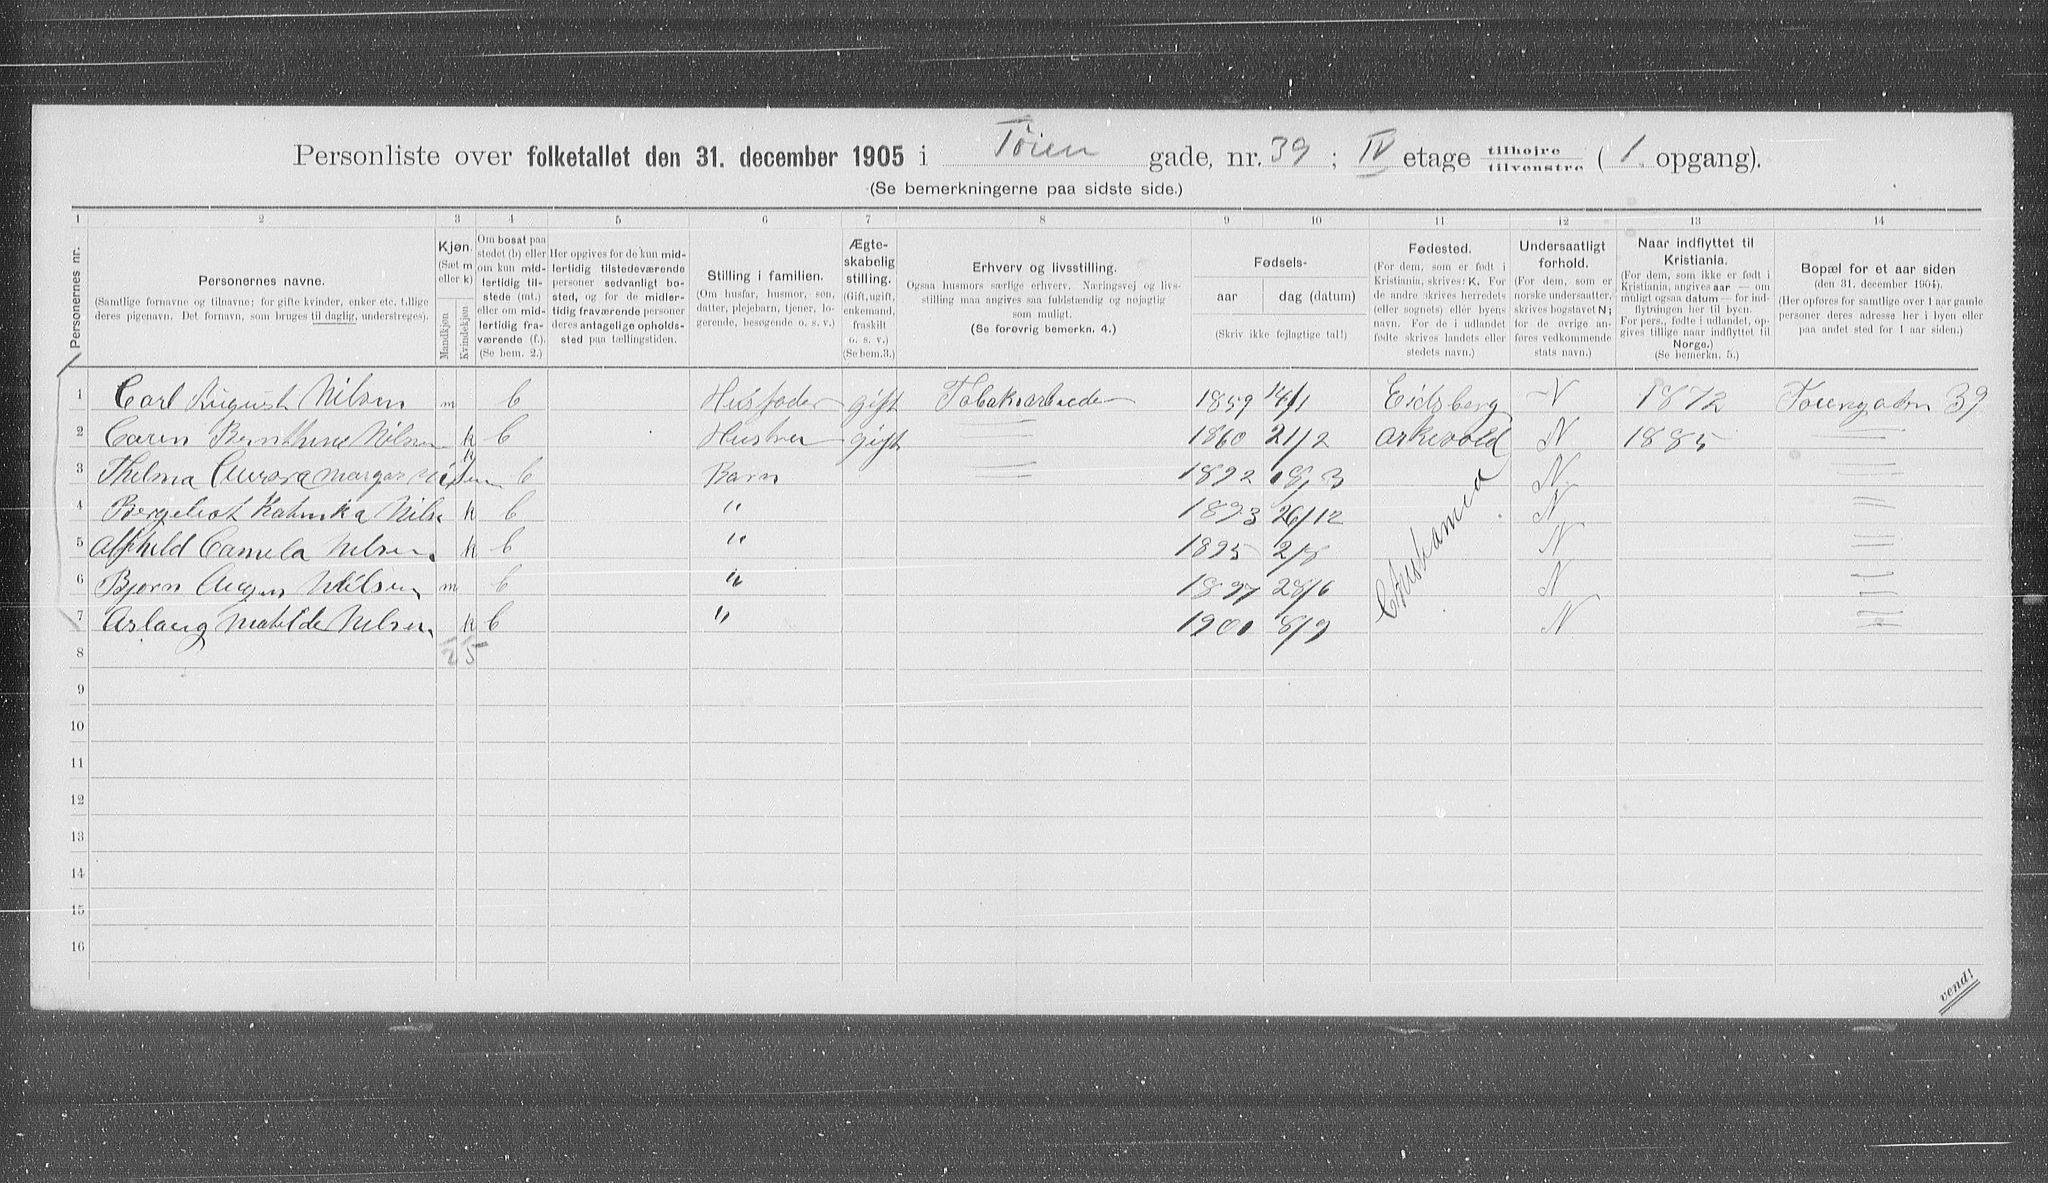 Personliste over folketallet den 31. december 1905 i Tøien gade, nr. 39 ; IV etage tilhøjre tilvenstre ( 1. opgang).
(Se bemerkningerne paa sidste side.)
1 2 3 4 5 6 7 8 9 10 11 12 13 14
Personernes nr.
Personernes navne.
(Samtlige fornavne og tilnavne; for gifte kvinder, enker etc. tillige
deres pigenavn. Det fornavn, som bruges til daglig, understreges).
Kjøn.
(Sæt m
eller k)
Mandkjøn
Kvindekjøn
Om bosat paa
stedet (b) eller
om kun mid-
lertidig til-
stede (mt.)
eller om mid-
lertidig fra-
værende (f.).
(Se bem. 2.)
Her opgives for de kun mid-
lertidig tilstedeværende
personer sedvanligt bo-
sted, og for de midler-
tidig fraværende personer
deres antagelige opholds-
sted paa tællingstiden.
Stilling i familien.
(Om husfar, husmor, søn,
datter, plejebarn, tjener, lo-
gerende, besøgende o. s. v.)
Ægte-
skabelig
stilling.
(Gift, ugift,
enkemand,
fraskilt
o. s. v.)
(Se bem. 3.)
Erhverv og livsstilling.
Ogsaa husmors særlige erhverv. Næringsvej og livs-
stilling maa angives saa fuldstændig og nøjagtig
som muligt.
(Se forøvrig bemerkn. 4.)
Fødsels-
aar dag (datum)
(Skriv ikke fejlagtige tal!)
Fødested.
(For dem, som er født i
Kristiania, skrives: K. For
de andre skrives herredets
(eller sognets) eller byens
navn. For de i udlandet
fødte skrives landets eller
stedets navn.)
Undersaatligt
forhold.
(For dem, som er
norske undersaatter,
skrives bogstavet N;
for de øvrige an-
føres vedkommende
stats navn.)
Naar indflyttet til
Kristiania.
(For dem, som ikke er født i
Kristiania, angives aar — om
muligt ogsaa datum — for ind-
flytningen her til byen.
For pers., fødte i udlandet, op-
gives tillige naar indflyttet til
Norge.)
(Se bemerkn. 5.)
Bopæl for et aar siden
(den 31. december 1904).
(Her opføres for samtlige over 1 aar gamle
personer deres adresse her i byen eller
paa andet sted for 1 aar siden.)
1 Carl August Nilsen m b Husfader gift Tobaksarbeider 1859 14/1 Eidsberg N 1872 Toiengaden 39
2 Caren Bernthine Nilsen k b Hustru gift 1860 21/2 N 1885
3 Thelma Aurora Margar Nilsen k b Barn 1892 18/3 Christiania N
4 Bergeliot Katinka Nilse k b " 1893 26/12 N
5 Alfhild Camela Nilsen k b " 1895 2/8 N
6 Bjørn Nilsen m b " 1897 28/6 N
7 Aslaug Matilde Nilsen k b " 1900 8/9 N
8 2 5
9
10
11
12
13
14
15
16
vend!